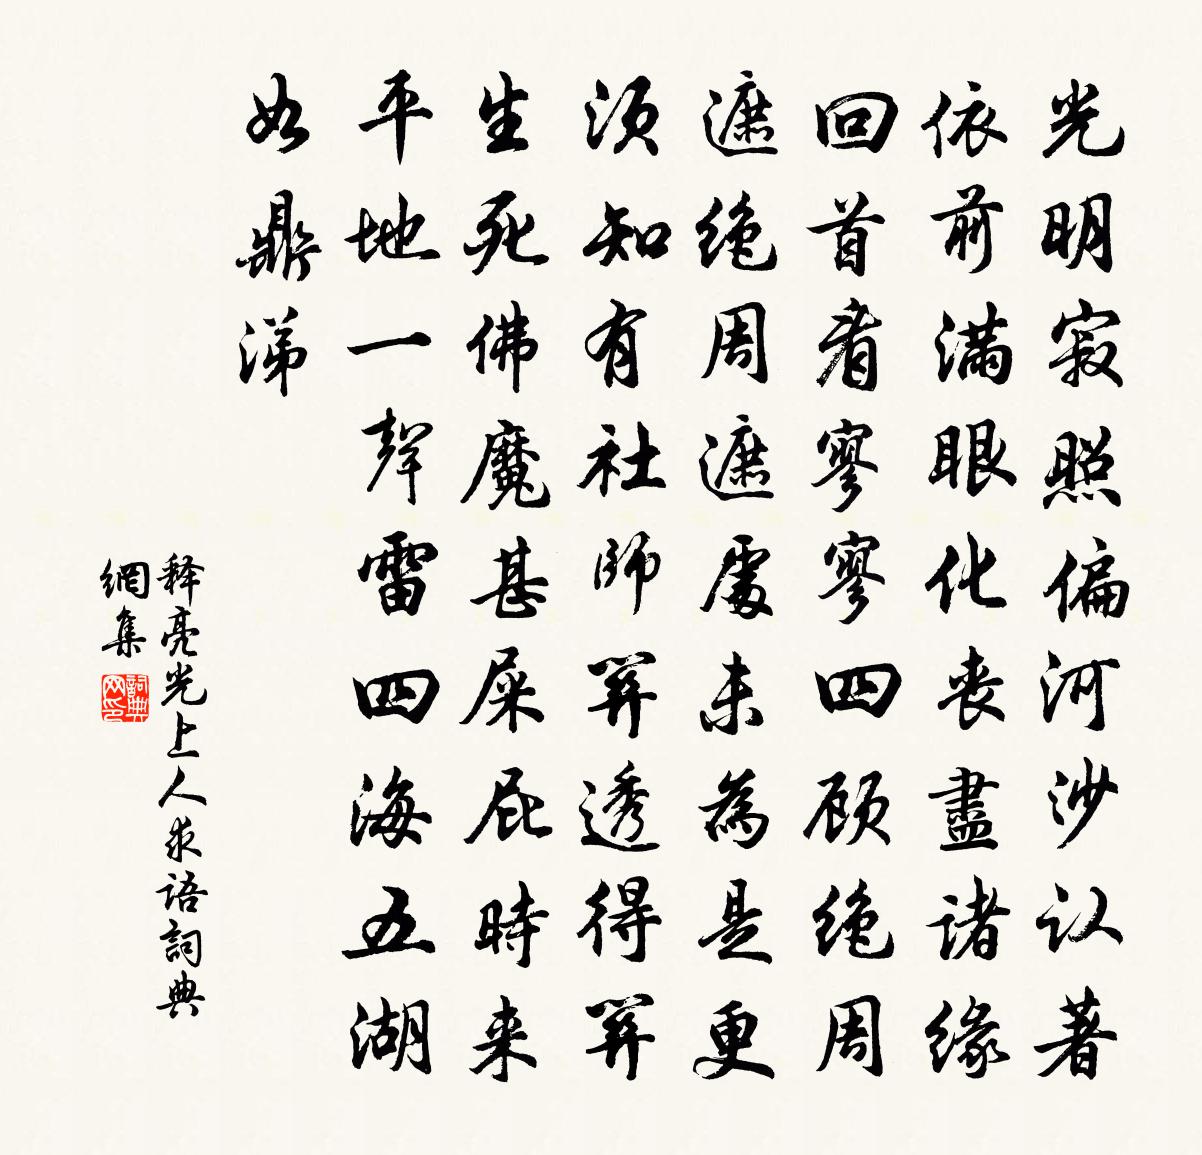 光明寂照偏河沙认著
依前满眼化丧盡诸缘
回首看寥寥四顾绝周
遮绝周遮處未為是更
须知有社师関透得関
生死佛魔甚屎屁時来
平地一聲雷四海五湖
如鼎沸
释亮光上人求语詞典
網集
詞典网印